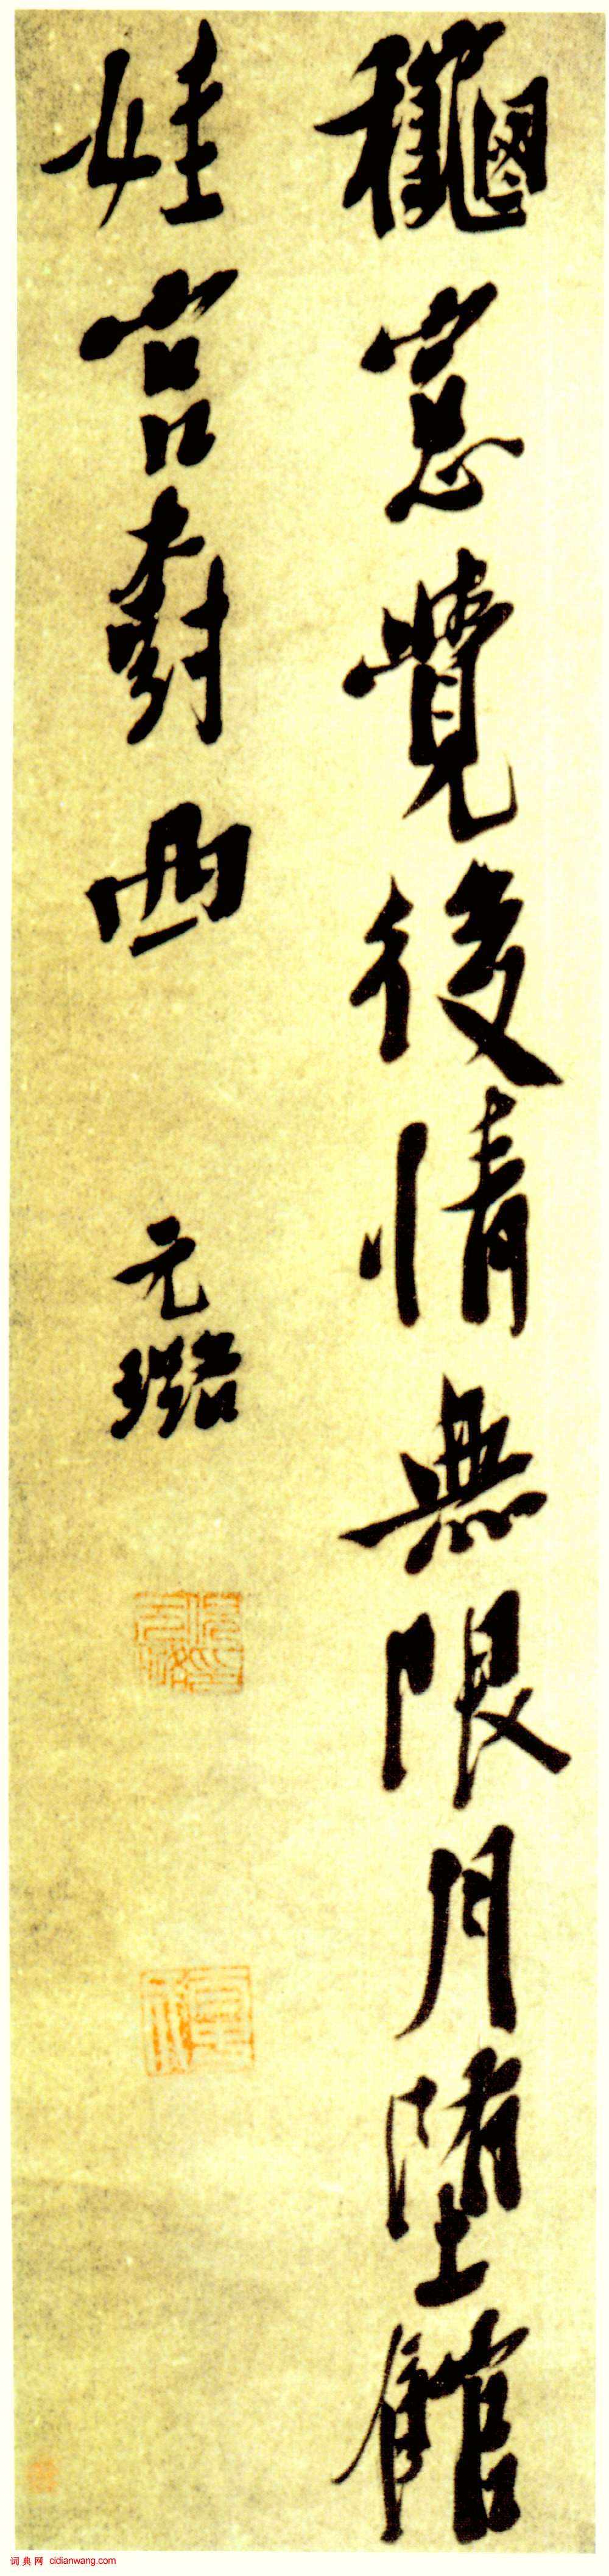 龝窓覺後情無限月墮館
娃宫樹西
元璐
词典网 cidianwang.com